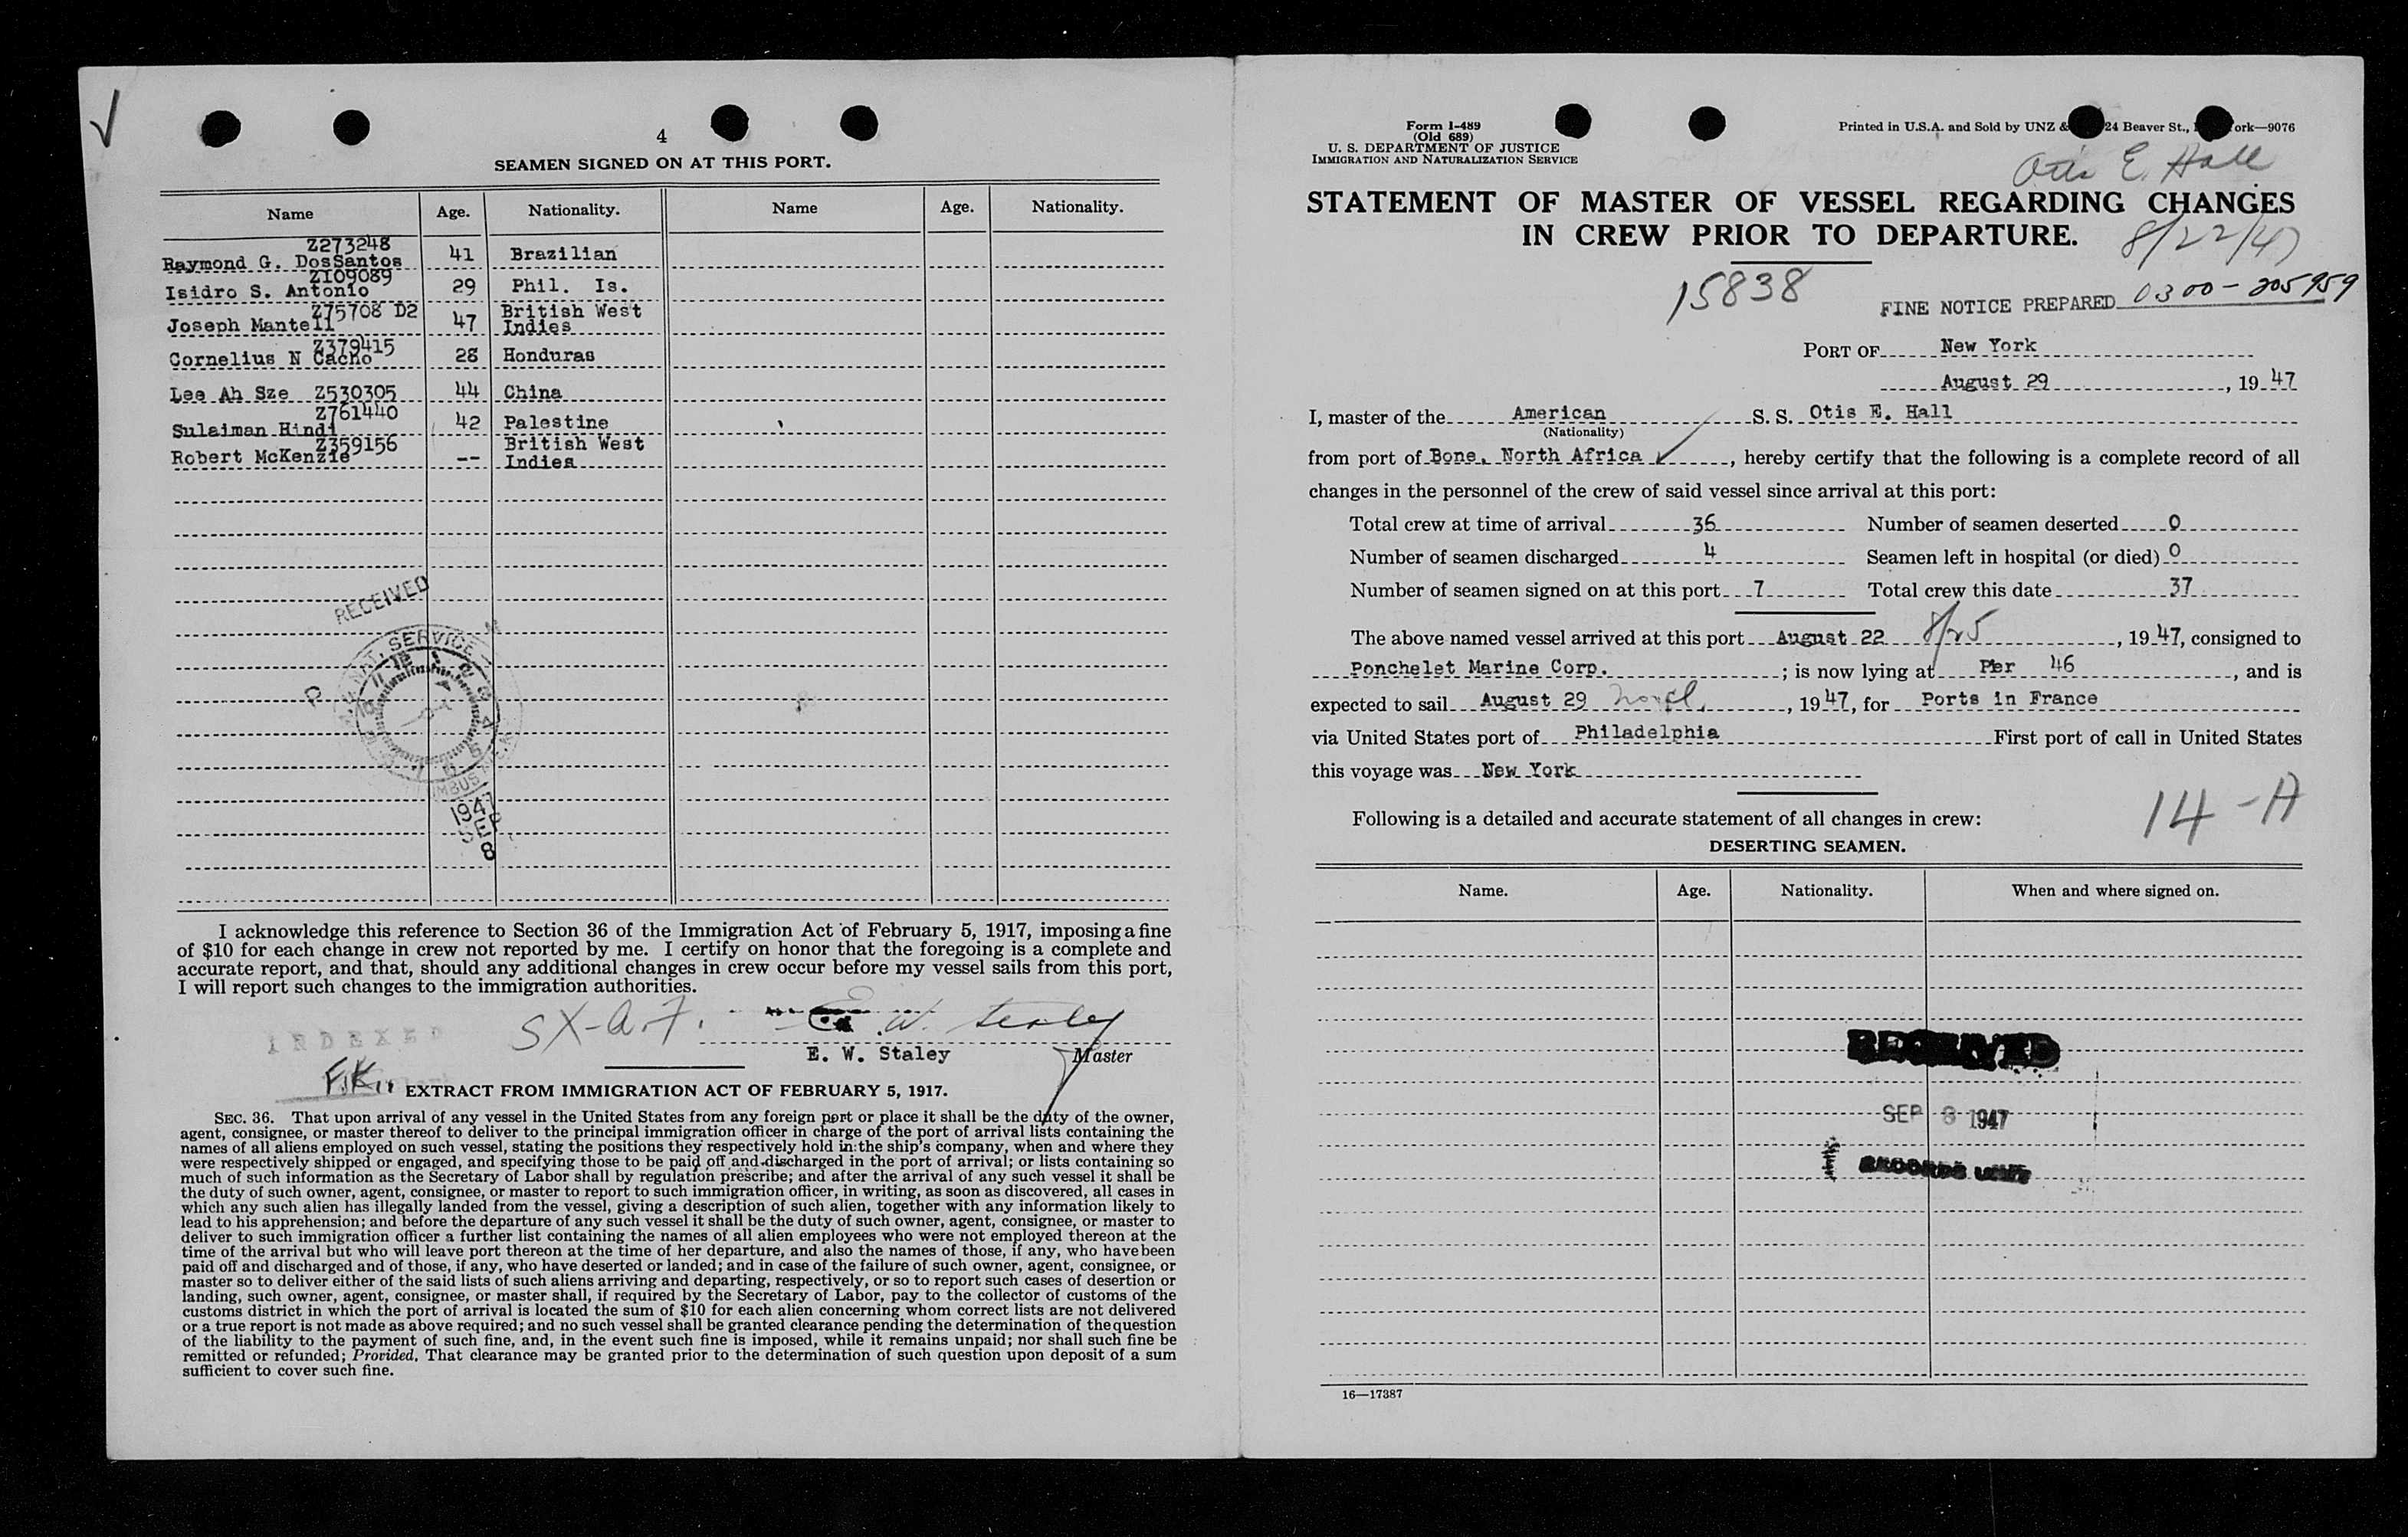 4
SEAMEN SIGNED ON AT THIS PORT.
Name Age. Nationality. Name Age. Nationality.
Z273248
Raymond G. DosSantos 41 Brazilian
Z109089
Isidro S. Antonio 29 Phil. Is.
Z75708 D2
Joseph Mantell 47 British West Indies
Z379415
Cornelius N Cacho 28 Honduras
Lee Ah Sze Z530305 44 China
Z761440
Sulaiman Hindi 42 Palestine
Z359156
Robert McKenzie -- British West Indies
RECEIVED
SERVICE
1947
SEP
8
I acknowledge this reference to Section 36 of the Immigration Act of February 5, 1917, imposing a fine
of $10 for each change in crew not reported by me. I certify on honor that the foregoing is a complete and
accurate report, and that, should any additional changes in crew occur before my vessel sails from this port,
I will report such changes to the immigration authorities.
INDEXED
SX-a.7.
E. W. Staley
E. W. Staley Master
F.K.
EXTRACT FROM IMMIGRATION ACT OF FEBRUARY 5, 1917.
SEC. 36. That upon arrival of any vessel in the United States from any foreign port or place it shall be the duty of the owner,
agent, consignee, or master thereof to deliver to the principal immigration officer in charge of the port of arrival lists containing the
names of all aliens employed on such vessel, stating the positions they respectively hold in the ship's company, when and where they
were respectively shipped or engaged, and specifying those to be paid off and discharged in the port of arrival; or lists containing so
much of such information as the Secretary of Labor shall by regulation prescribe; and after the arrival of any such vessel it shall be
the duty of such owner, agent, consignee, or master to report to such immigration officer, in writing, as soon as discovered, all cases in
which any such alien has illegally landed from the vessel, giving a description of such alien, together with any information likely to
lead to his apprehension; and before the departure of any such vessel it shall be the duty of such owner, agent, consignee, or master to
deliver to such immigration officer a further list containing the names of all alien employees who were not employed thereon at the
time of the arrival but who will leave port thereon at the time of her departure, and also the names of those, if any, who have been
paid off and discharged and of those, if any, who have deserted or landed; and in case of the failure of such owner, agent, consignee, or
master so to deliver either of the said lists of such aliens arriving and departing, respectively, or so to report such cases of desertion or
landing, such owner, agent, consignee, or master shall, if required by the Secretary of Labor, pay to the collector of customs of the
customs district in which the port of arrival is located the sum of $10 for each alien concerning whom correct lists are not delivered
or a true report is not made as above required; and no such vessel shall be granted clearance pending the determination of the question
of the liability to the payment of such fine, and, in the event such fine is imposed, while it remains unpaid; nor shall such fine be
remitted or refunded; Provided, That clearance may be granted prior to the determination of such question upon deposit of a sum
sufficient to cover such fine.
Form I-489
(Old 689)
U. S. DEPARTMENT OF JUSTICE
IMMIGRATION AND NATURALIZATION SERVICE
Printed in U.S.A. and Sold by UNZ & 24 Beaver St., ork—9076
Otis E. Hall
STATEMENT OF MASTER OF VESSEL REGARDING CHANGES
IN CREW PRIOR TO DEPARTURE.
8/22/47
15838
FINE NOTICE PREPARED 0300-205959
PORT OF New York
August 29, 1947
I, master of the American S. S. Otis E. Hall
(Nationality)
from port of Bone, North Africa, hereby certify that the following is a complete record of all
changes in the personnel of the crew of said vessel since arrival at this port:
Total crew at time of arrival 36 Number of seamen deserted 0
Number of seamen discharged 4 Seamen left in hospital (or died) 0
Number of seamen signed on at this port 7 Total crew this date 37
The above named vessel arrived at this port August 22 8/25, 1947, consigned to
Ponchelet Marine Corp.; is now lying at Pier 46, and is
expected to sail August 29, 1947, for Ports in France
via United States port of Philadelphia First port of call in United States
this voyage was New York
14-A
Following is a detailed and accurate statement of all changes in crew:
DESERTING SEAMEN.
Name. Age. Nationality. When and where signed on.
RECEIVED
SEP 8 1947
RECORDS UNIT
16—17387